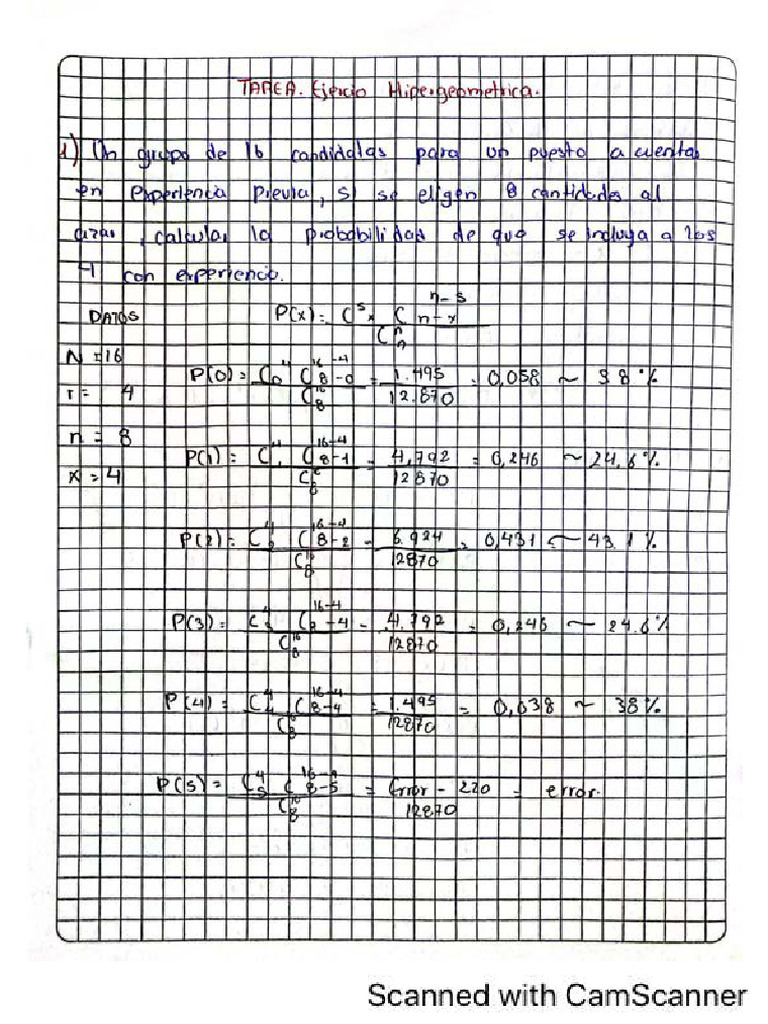 TAREA. Ejercio Hipergeometrica.
1) Un grupo de 16 candidatas para un puesto a cuentas
en experiencia previa, si se eligen 8 cantidades al
azar, calcular la probabilidad de que se incluya a los
4 con experiencia.
DATOS
P(x) = C^s_x C^{n-s}_{n-x} / C^n_n
N = 16
P(0) = C^4_0 C^{16-4}_{8-0} / C^{16}_8 = 1.495 / 12.870 = 0,038 ~ 38%
r = 4
n = 8
P(1) = C^4_1 C^{16-4}_{8-1} / C^{16}_8 = 4,792 / 12870 = 0,246 ~ 24,6%
x = 4
P(2) = C^4_2 C^{16-4}_{8-2} / C^{16}_8 = 6.924 / 12870 = 0,431 ~ 43.1%
P(3) = C^4_3 C^{16-4}_{8-4} / C^{16}_8 = 4.792 / 12870 = 0,246 ~ 24.6%
P(4) = C^4_4 C^{16-4}_{8-4} / C^{16}_8 = 1.495 / 12870 = 0,038 ~ 38%
P(5) = C^4_5 C^{16-4}_{8-5} / C^{16}_8 = Error - 220 / 12870 = error.
Scanned with CamScanner